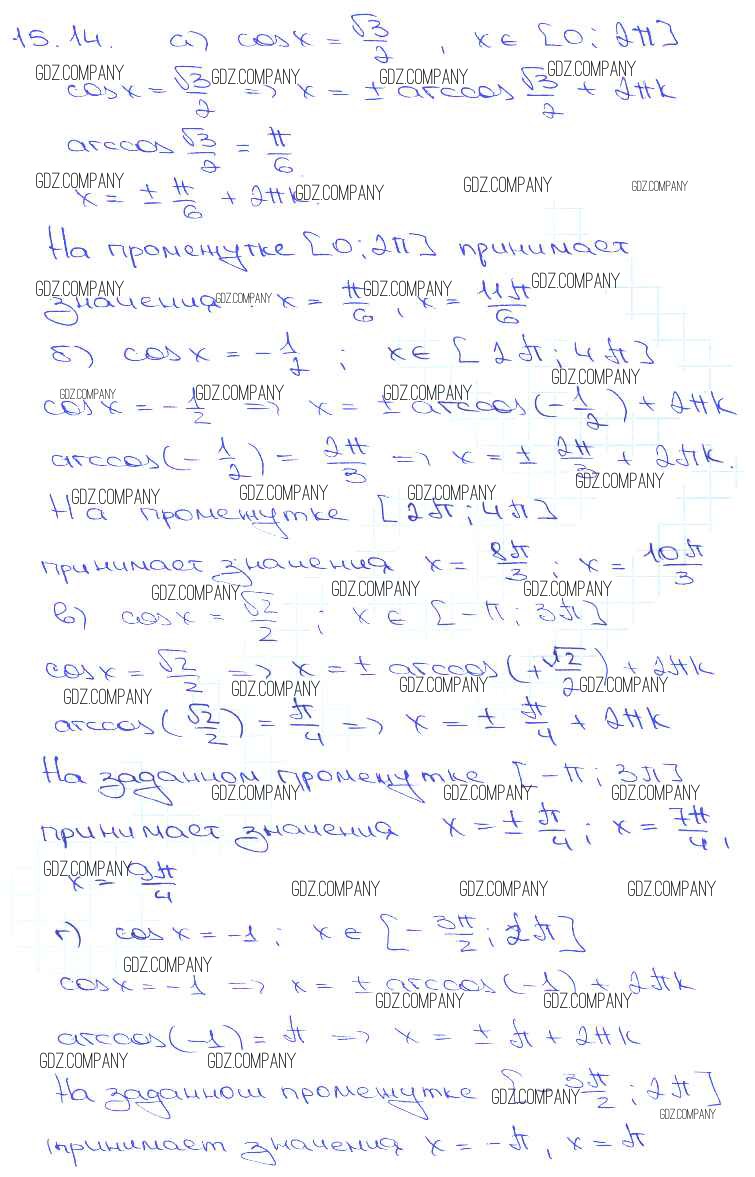 15.14. а) cosx = √3/2, x ∈ [0; 2π]
GDZ.COMPANY GDZ.COMPANY GDZ.COMPANY GDZ.COMPANY
cosx = √3/2 => x = ± arccos √3/2 + 2πk
arccos √3/2 = π/6
GDZ.COMPANY GDZ.COMPANY GDZ.COMPANY GDZ.COMPANY
x = ± π/6 + 2πk.
На промежутке [0; 2π] принимает
GDZ.COMPANY GDZ.COMPANY GDZ.COMPANY GDZ.COMPANY
значения: x = π/6, x = 11π/6
б) cosx = -1/2; x ∈ [2π; 4π]
GDZ.COMPANY GDZ.COMPANY GDZ.COMPANY GDZ.COMPANY
cosx = -1/2 => x = ± arccos(-1/2) + 2πk
arccos(-1/2) = 2π/3 => x = ± 2π/3 + 2πk.
GDZ.COMPANY GDZ.COMPANY GDZ.COMPANY GDZ.COMPANY
На промежутке [2π; 4π]
принимает значения x = 8π/3; x = 10π/3
GDZ.COMPANY GDZ.COMPANY GDZ.COMPANY
в) cosx = √2/2; x ∈ [-π; 3π]
cosx = √2/2 => x = ± arccos(+√2/2) + 2πk
GDZ.COMPANY GDZ.COMPANY GDZ.COMPANY GDZ.COMPANY
arccos(√2/2) = π/4 => x = ± π/4 + 2πk
На заданном промежутке [-π; 3π]
GDZ.COMPANY GDZ.COMPANY GDZ.COMPANY
принимает значения x = ± π/4; x = 7π/4,
GDZ.COMPANY GDZ.COMPANY GDZ.COMPANY GDZ.COMPANY
x = 9π/4
г) cosx = -1; x ∈ [-3π/2; 2π]
GDZ.COMPANY
cosx = -1 => x = ± arccos(-1) + 2πk
GDZ.COMPANY GDZ.COMPANY
arccos(-1) = π => x = ± π + 2πk
GDZ.COMPANY GDZ.COMPANY
На заданном промежутке [-3π/2; 2π]
GDZ.COMPANY GDZ.COMPANY
принимает значения x = -π, x = π